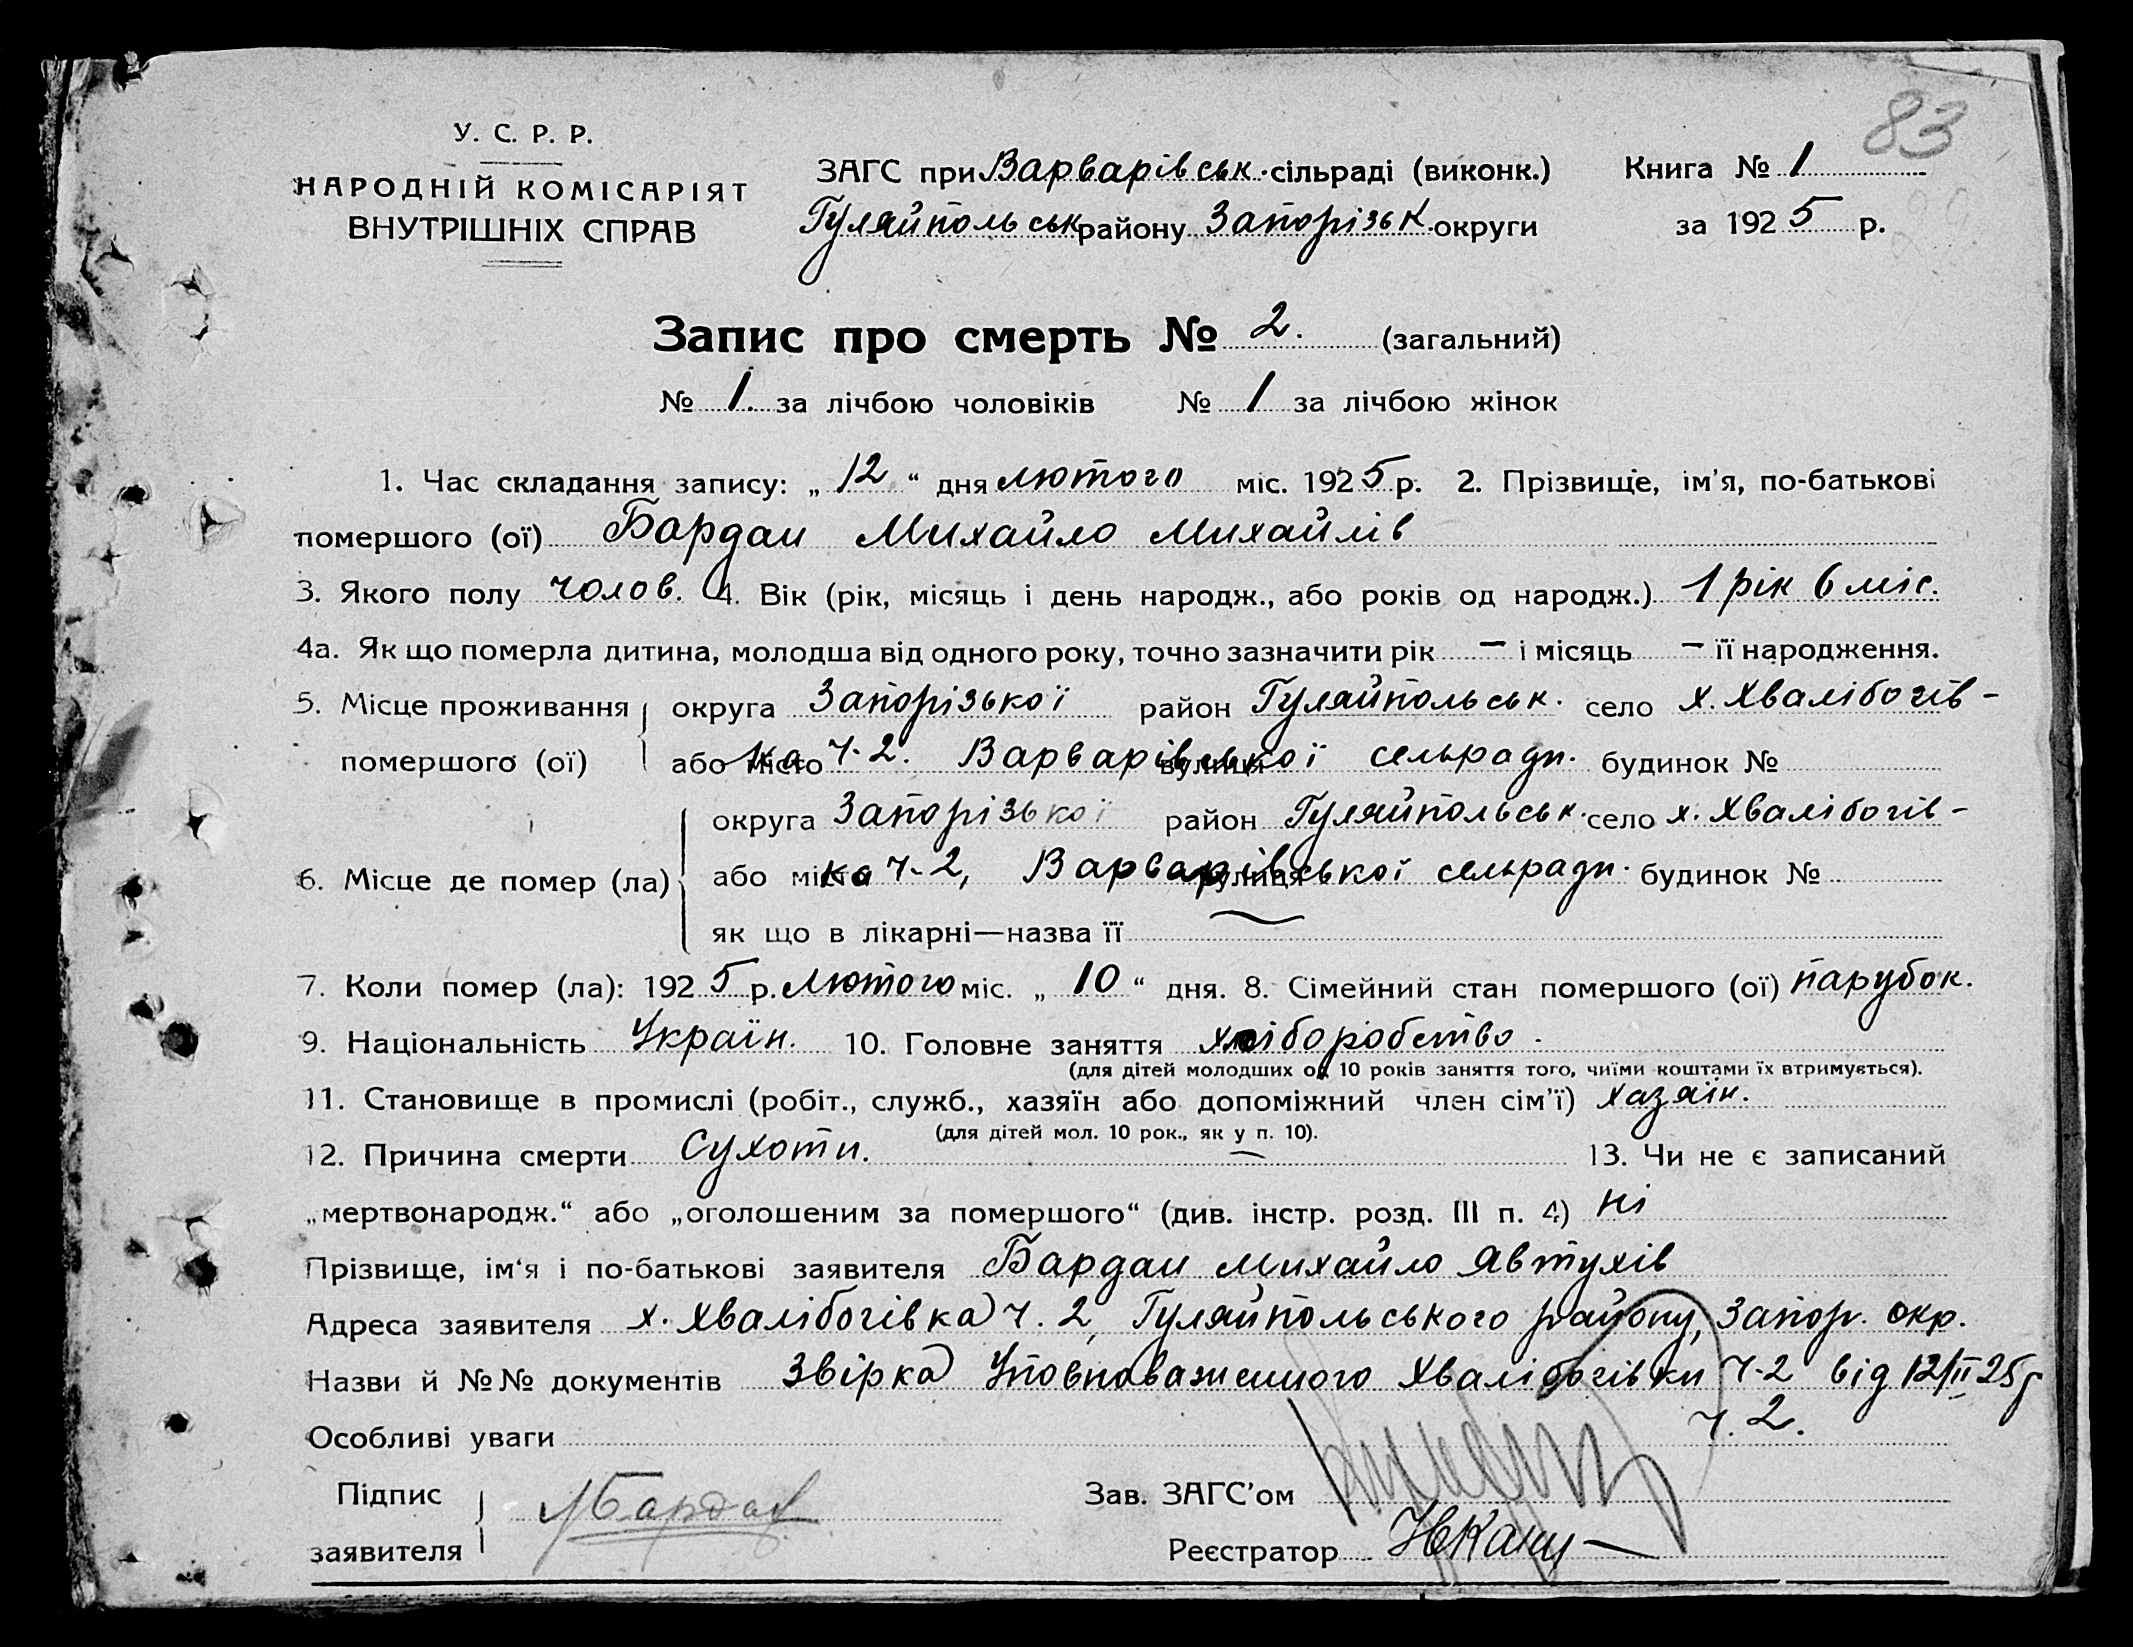 83
У. С. Р. Р.
НАРОДНІЙ КОМІСАРІЯТ
ВНУТРІШНІХ СПРАВ
ЗАГС при Варварівськ. сільраді (виконк.) Книга № 1
Гуляйпольськ району Запорізьк. округи за 1925 р.
Запис про смерть № 2. (загальний)
№ 1. за лічбою чоловіків № 1 за лічбою жінок
1. Час складання запису: „12“ дня лютого міс. 1925 р. 2. Прізвище, ім'я, по-батькові
помершого (ої) Бардаш Михайло Михайлів
3. Якого полу чолов. 4. Вік (рік, місяць і день народж., або років од народж.) 1 рік 6 міс.
4а. Як що померла дитина, молодша від одного року, точно зазначити рік – і місяць – її народження.
5. Місце проживання округа Запорізької район Гуляйпольськ. село х. Хвалібогів-
помершого (ої) або місто ка ч-2. Варварівської вулиця сельради. будинок №
округа Запорізької район Гуляйпольськ. село х. Хвалібогів-
6. Місце де помер (ла) або місто ка ч-2, Варварівської вулиця сельради. будинок №
як що в лікарні—назва її —
7. Коли помер (ла): 1925 р. лютого міс. „10“ дня. 8. Сімейний стан помершого (ої) парубок.
9. Національність Україн. 10. Головне заняття хліборобство.
(для дітей молодших од 10 років заняття того, чиїми коштами їх втримується).
11. Становище в промислі (робіт., служб., хазяїн або допоміжний член сім'ї) хазяїн.
(для дітей мол. 10 рок., як у п. 10).
12. Причина смерти Сухоти. — 13. Чи не є записаний
„мертвонародж.“ або „оголошеним за помершого“ (див. інстр. розд. III п. 4) ні
Прізвище, ім'я і по-батькові заявителя Бардаш Михайло Явтухів
Адреса заявителя х. Хвалібогівка ч. 2, Гуляйпольського району, Запор. окр.
Назви й №№ документів Звірка Уповноваженого Хвалібогівки ч-2 від 12/II 25 р
ч. 2.
Особливі уваги
Підпис Зав. ЗАГС'ом
заявителя Реєстратор